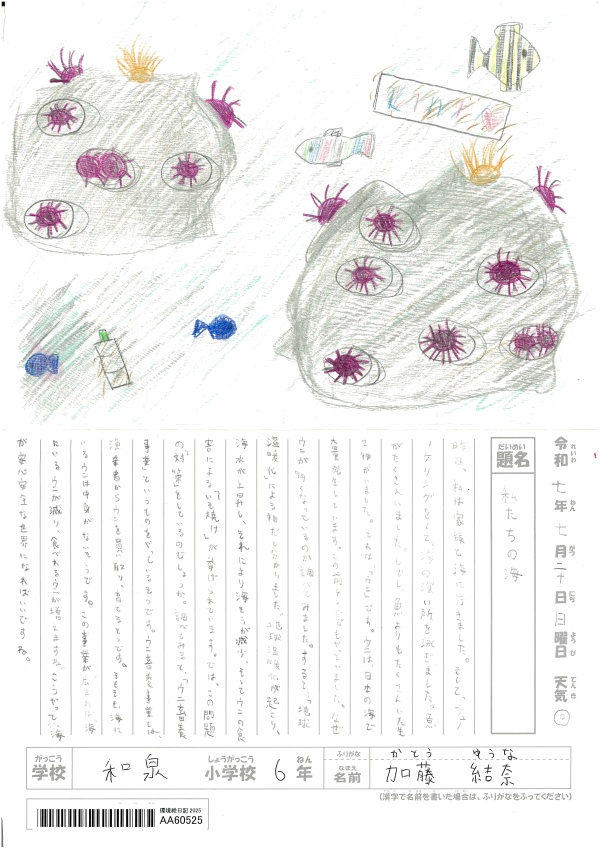 令和七年七月二十日日曜日 天気◎
れいわ ねん がつ にち ようび てんき
だいめい
題名
私たちの海
昨日、私は家族と海に行きました。そして、シュノ
ーケリングをして、海の深い所を泳ぎました。魚
がたくさんいました。しかし、魚よりもたくさんいた生
き物がいました。それは、「ウニ」です。ウニは、日本の海で
大量発生しています。この前テレビでもやっていました。なぜ
ウニが多くなっているのか調べてみました。すると、「地球
温暖化」による物だと分かりました。地球温暖化が起こり、
海水が上昇し、それにより海そうが減少、そしてウニの食
害による「いそ焼け」が挙げられています。では、この問題
の対策をしているのでしょうか。調べてみると、「ウニ畜養
事業」というものをやっているそうです。ウニ畜養事業とは、
漁業者からウニを買い取り、育てるそうです。そもそも、海に
いるウニは中身がないそうです。この事業が広まれば、海
にいるウニが減り、食べれるウニが増えますね。こうやって、海
が安心安全な世界になればいいですね。
がっこう しょうがっこう ねん
学校 和泉 小学校 6年
ふりがな かとう ゆうな
なまえ
名前 加藤 結奈
(漢字で名前を書いた場合は、ふりがなをふってください)
環境絵日記 2025
AA60525